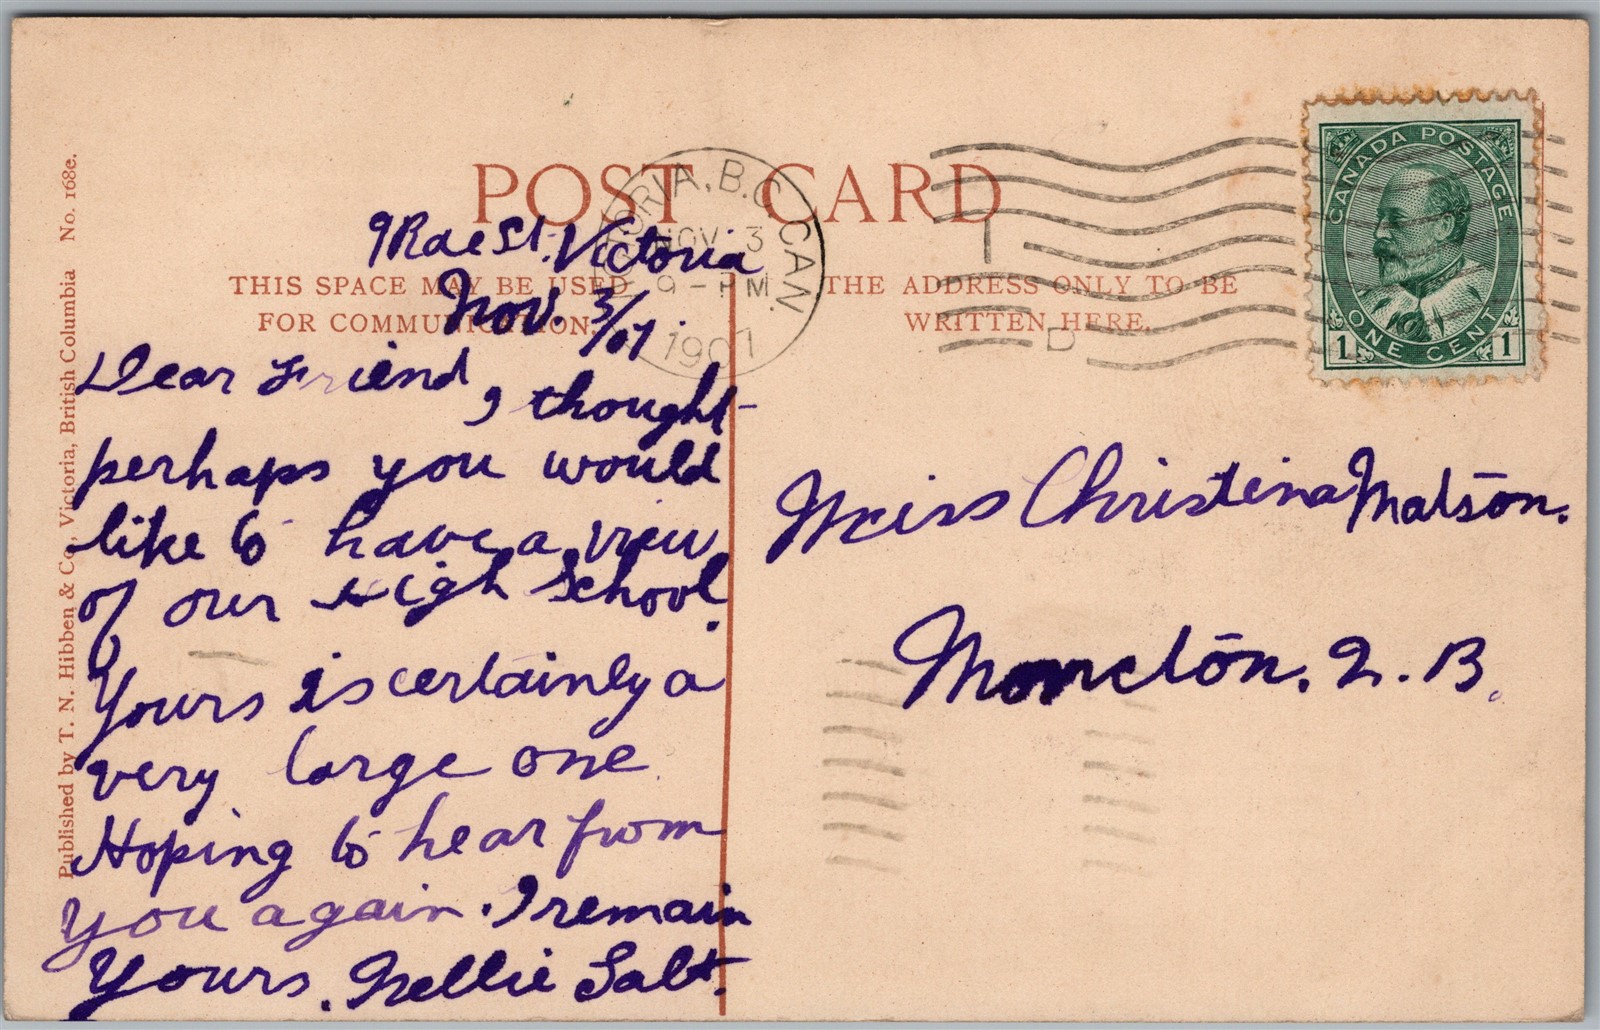 POST CARD
THIS SPACE MAY BE USED
FOR COMMUNICATION.
THE ADDRESS ONLY TO BE
WRITTEN HERE.
Published by T. N. Hibben & Co., Victoria, British Columbia No. 168e.
VICTORIA, B.C. CAN.
NOV 3
9 - PM
1907
D
CANADA POSTAGE
ONE CENT
1 1
9 Rae St. Victoria
Nov. 3/07
Dear Friend,
I thought
perhaps you would
like to have a view
of our High School.
Yours is certainly a
very large one
Hoping to hear from
you again. I remain
Yours. Nellie Salt.
Miss Christina Matson.
Moncton. N. B.